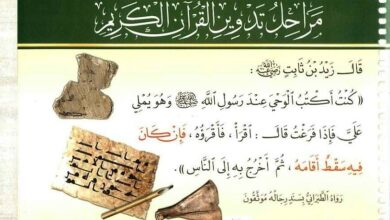 مَرَاحِلُ تَدْوِينِ القُرْآنِ الكَرِيمِ
قَالَ زَيْدُ بْنُ ثَابِتٍ رضي الله عنه :
«كُنْتُ أَكْتُبُ الْوَحْيَ عِنْدَ رَسُولِ اللَّهِ ﷺ وَهُوَ يُمْلِي
عَلَيَّ فَإِذَا فَرَغْتُ قَالَ : اقْرَأْ ، فَأَقْرَؤُهُ ، فَإِنْ كَانَ
فِيهِ سَقْطٌ أَقَامَهُ ، ثُمَّ أَخْرُجُ بِهِ إِلَى النَّاسِ» .
رَوَاهُ الطَّبَرَانِيُّ بِسَنَدٍ رِجَالُهُ مُوَثَّقُونَ